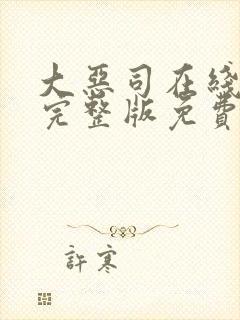 大惡司在綫
完整版免費
許寒